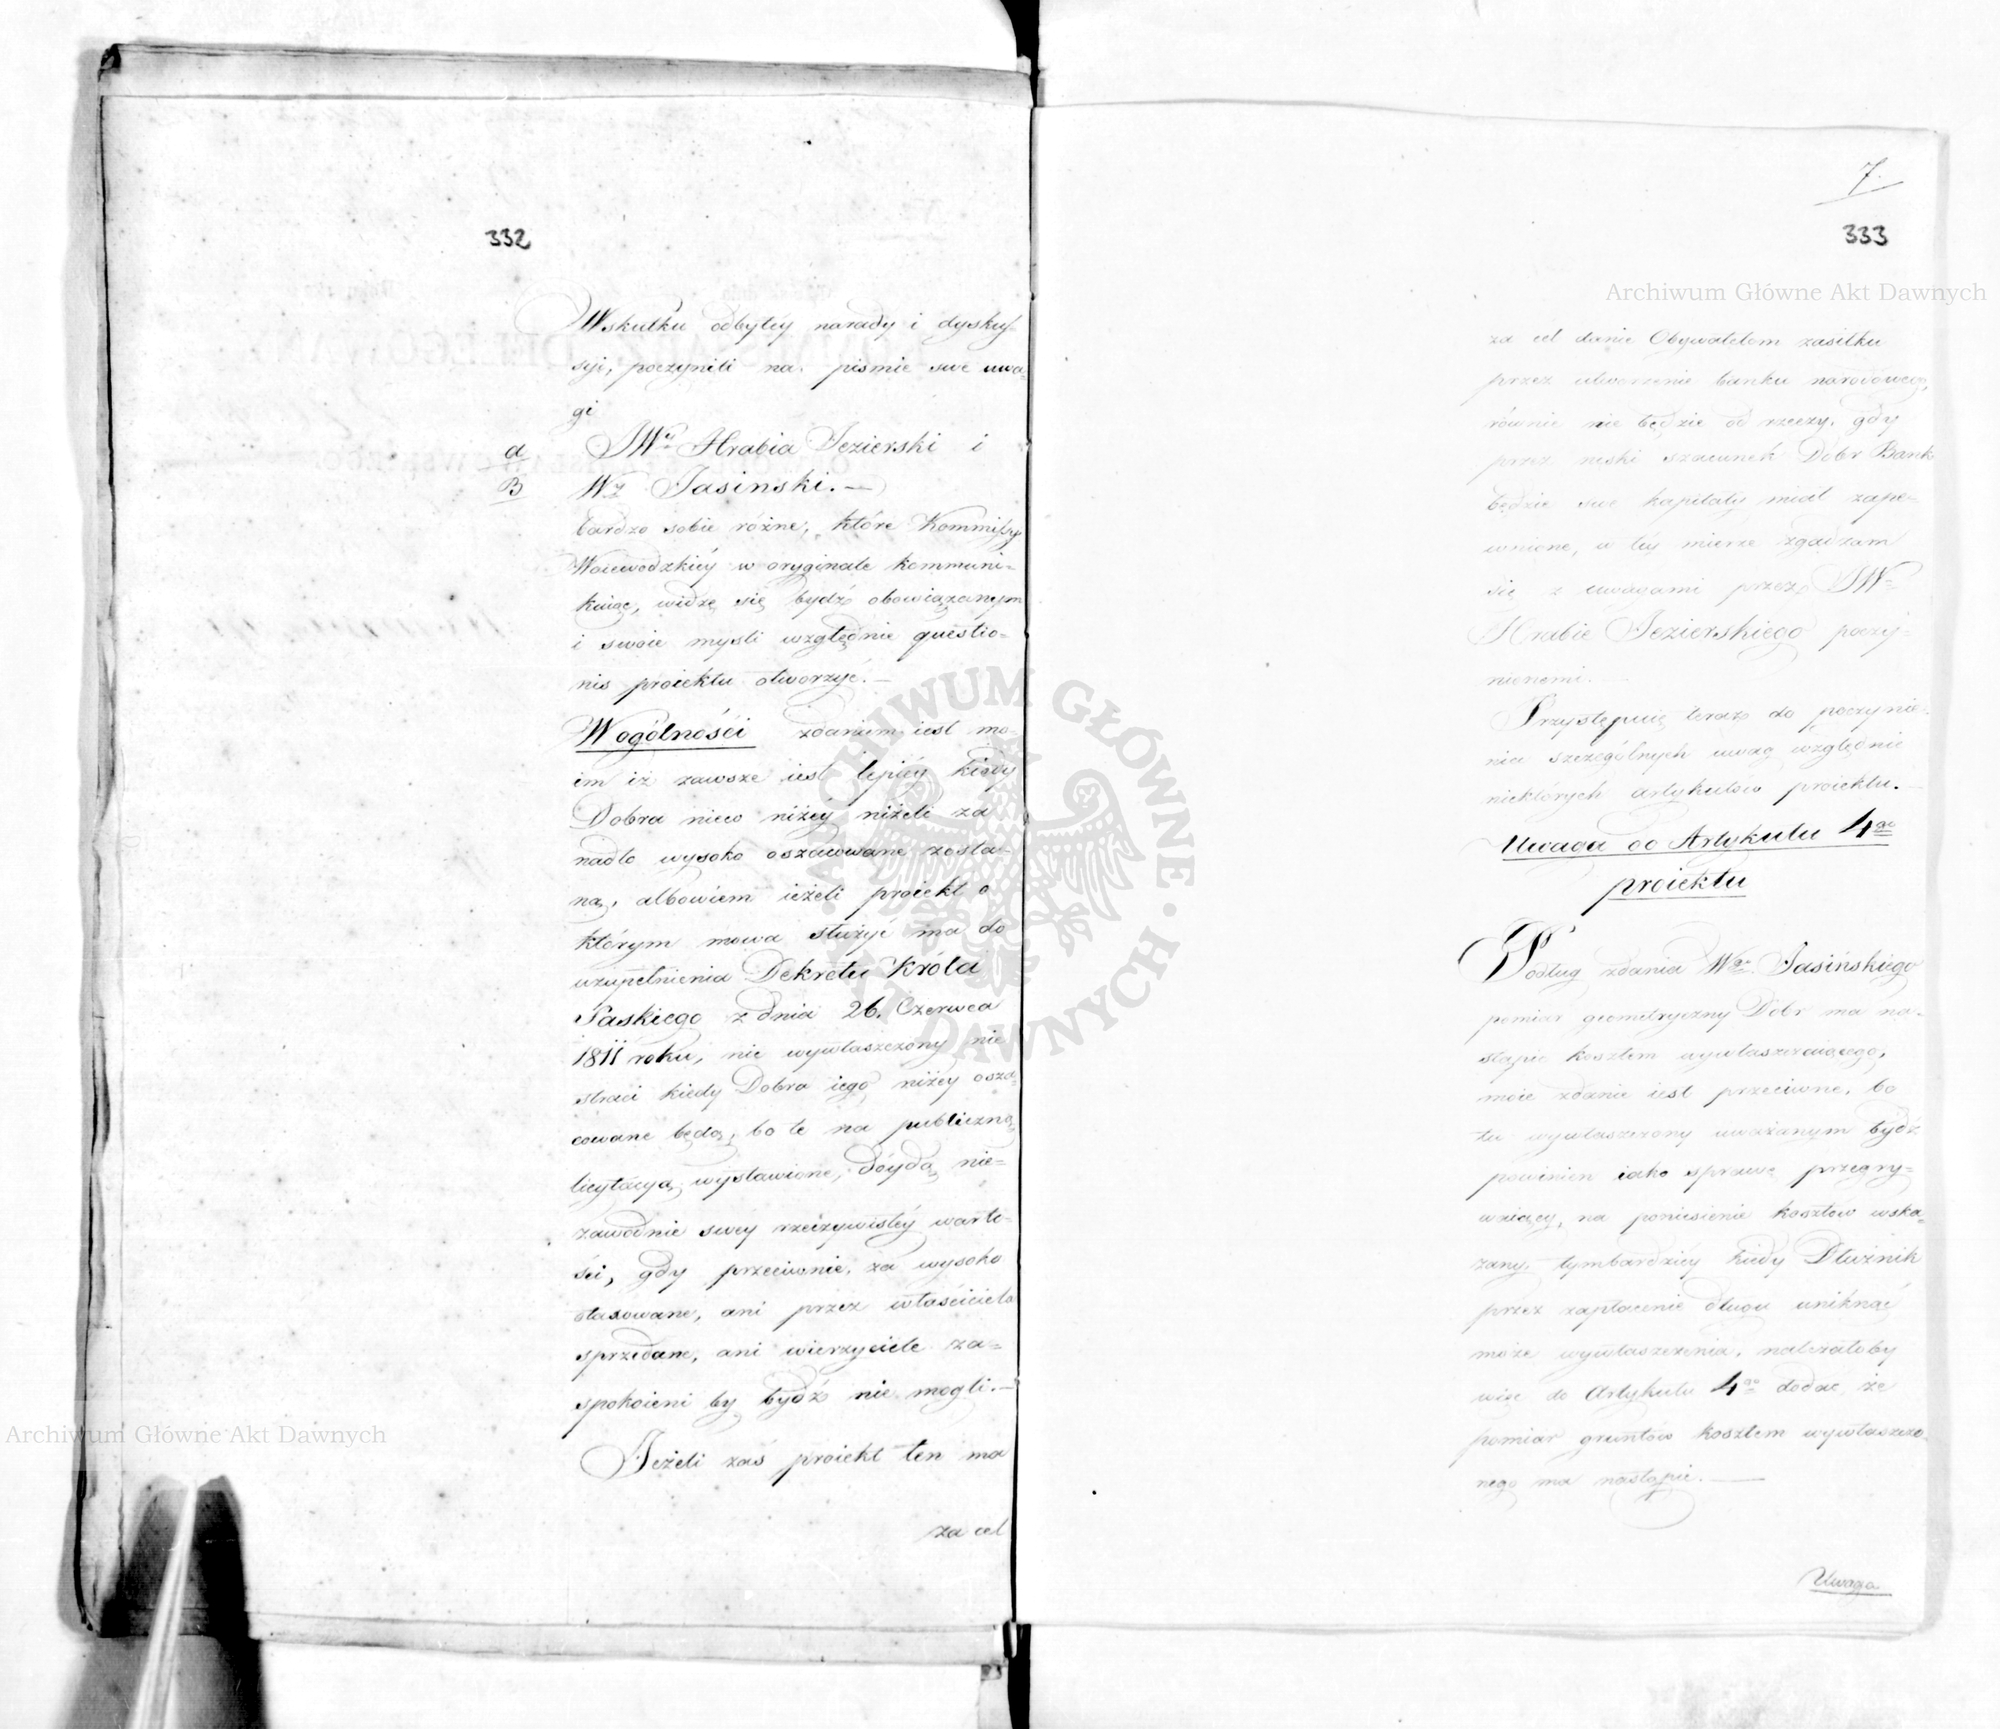 332
Wskutku odbytéy narady i dyskus-
syi, poczynili na piśmie swe uwa-
gi
a JWy Hrabia Jezierski i
B Wy Jasiński. —
bardzo sobie różne, które Kommissyi
Woiewodzkiéy w oryginale kommuni-
kuiąc, widzę się bydź obowiązanym
i swoie myśli względnie questio-
nis proiektu otworzyć. —
Wogólności zdaniem iest mo-
im iż zawsze iest lepiéy kiedy
Dobra nieco niżéy niżeli za
nadto wysoko oszacowane zosta-
ną, albowiem ieżeli proiekt o
którym mowa służyć ma do
uzupełnienia Dekretu Króla
Saskiego z dnia 26. Czerwca
1811 roku, nie wywłaszczony nie
straci kiedy Dobra iego niżey osza-
cowane będą, bo te na publiczną
licytacyą wystawione, dóydą nie-
zawodnie swey rzeczywistéy warto-
ści, gdy przeciwnie, za wysoko
otaxowane, ani przez właściciela
sprzedane, ani wierzyciele za-
spokoieni by bydź nie mogli. —
Jeżeli zaś proiekt ten ma
za cel
7.
333
Archiwum Główne Akt Dawnych
za cel danie Obywatelom zasiłku
przez utworzenie banku narodowego,
równie nie będzie od rzeczy, gdy
przez niski szacunek Dobr Bank
będzie swe kapitały miał zape-
wnione, w téy mierze zgadzam
się z uwagami przez JWo
Hrabie Jezierskiego poczy-
nionemi. —
Przystępuię teraz do poczynie-
nia szczególnych uwag względnie
niektórych artykułów proiektu. —
Uwaga do Artykułu 4go
proiektu
Podług zdania Wgo Jasińskiego
pomiar geometryczny Dobr ma na-
stąpić kosztem wywłaszczaiącego,
moie zdanie iest przeciwne, bo
tu wywłaszczony uważanym bydź
powinien iako sprawę przegry-
waiący, na poniesienie kosztów wska-
zany, tymbardziéy kiedy Dłużnik
przez zapłacenie długu uniknąć
może wywłaszczenia, należałoby
więc do Artykułu 4go dodać, że
pomiar gruntów kosztem wywłaszczo-
nego ma nastąpić. —
Uwaga
Archiwum Główne Akt Dawnych
ARCHIWUM GŁÓWNE AKT DAWNYCH